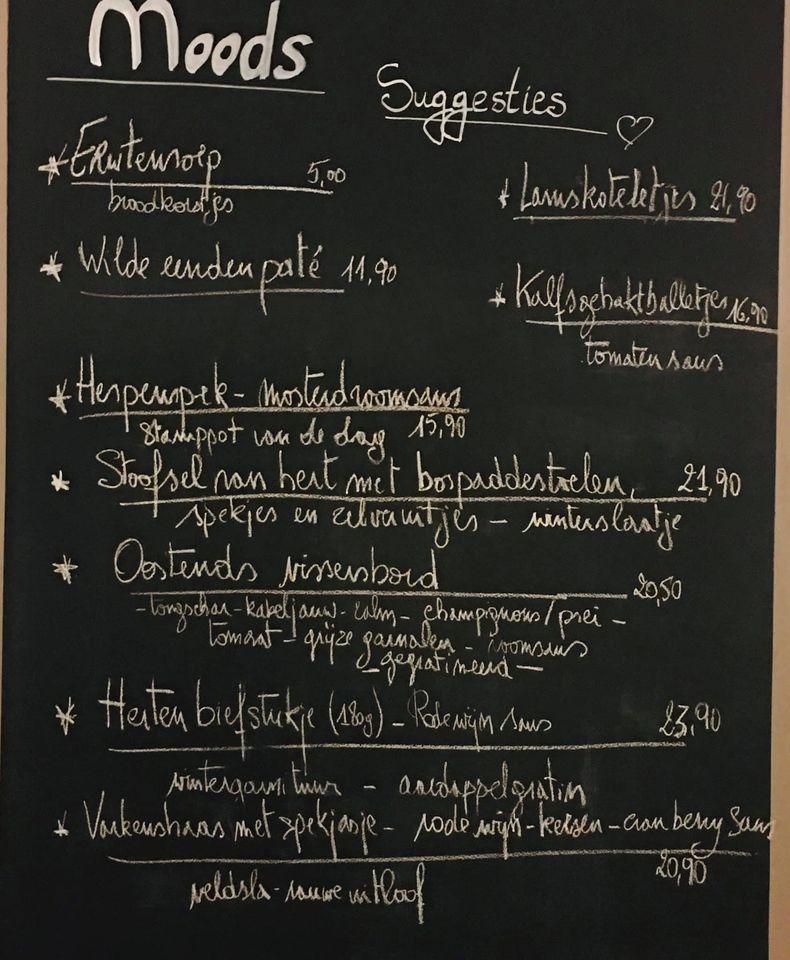 Moods
Suggesties
Erwtensoep 5,00
broodkorstjes
Wilde eenden paté 11,90
Lamskoteletjes 21,90
Kalfsgehaktballetjes 16,90
tomatensaus
Hespenspek - mosterdroomsaus
stamppot van de dag 15,90
Stoofsel van hert met bospaddestoelen, 21,90
spekjes en zilveruitjes - winterslaatje
Oostends vissersbord 20,50
- tongschar - kabeljauw - zalm - champignons / prei -
tomaat - grijze garnalen - roomsaus
- gegratineerd -
Herten biefstukje (180g) - Rode wijn saus 23,90
wintergarnituur - aardappelgratin
Varkenshaas met spekjasje - rode wijn - kersen - cranberry saus
20,90
veldsla - rauwe witloof